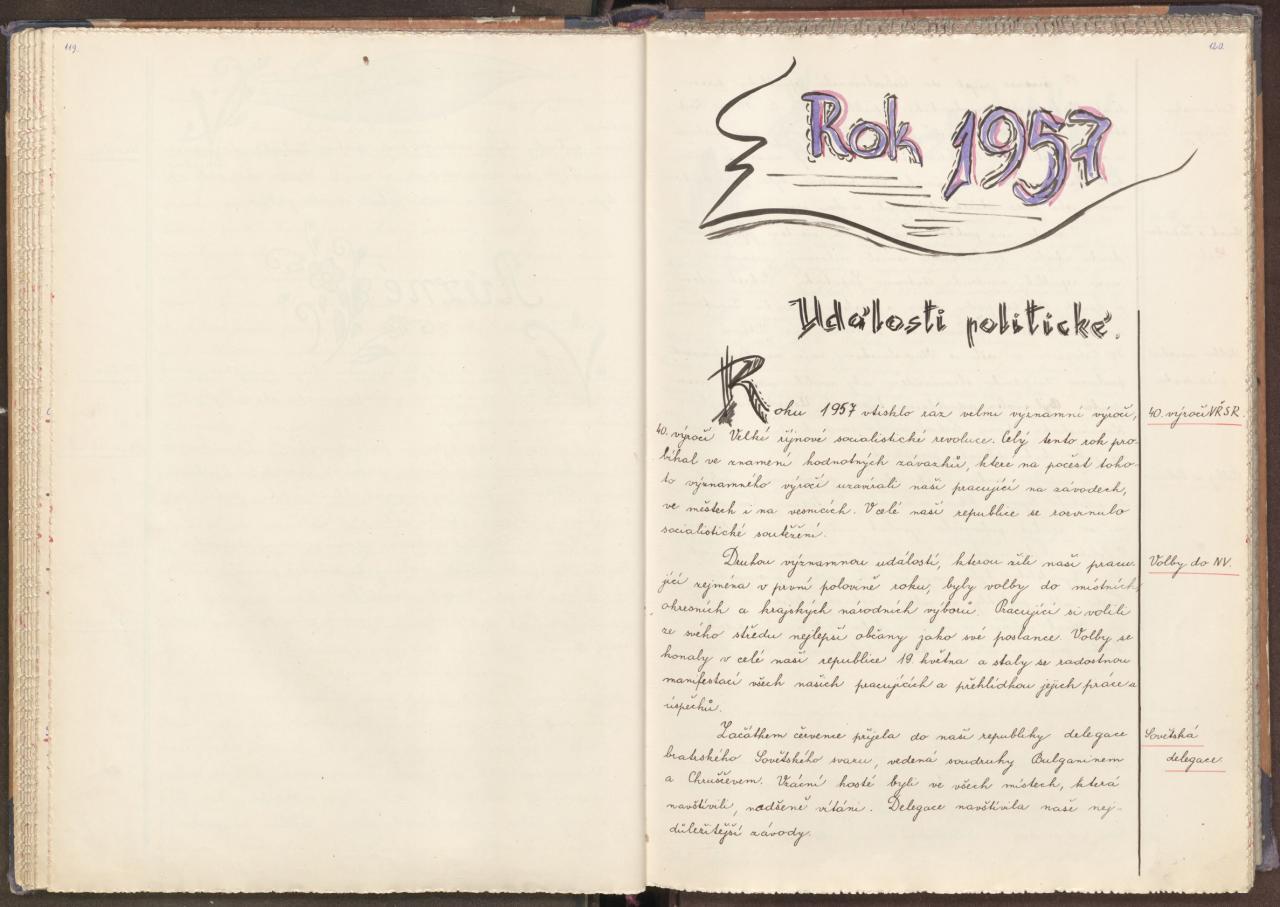 119.
120.
Rok 1957
Události politické.
Roku 1957 vtisklo ráz velmi významné výročí,
40. výročí VŘSR.
40. výročí Velké říjnové socialistické revoluce. Celý tento rok pro-
bíhal ve znamení hodnotných závazků, které na počest toho-
to významného výročí uzavírali naši pracující na závodech,
ve městech i na vesnicích. V celé naší republice se rozvinulo
socialistické soutěžení.
Druhou významnou událostí, kterou žili naši pracu-
Volby do NV.
jící zejména v první polovině roku, byly volby do místních,
okresních a krajských národních výborů. Pracující si volili
ze svého středu nejlepší občany jako své poslance. Volby se
konaly v celé naší republice 19. května a staly se radostnou
manifestací všech našich pracujících a přehlídkou jejich práce a
úspěchů.
Začátkem července přijela do naší republiky delegace
Sovětská
bratrského Sovětského svazu, vedená soudruhy Bulganinem
delegace.
a Chruščevem. Vzácní hosté byli ve všech místech, která
navštívili, nadšeně vítáni. Delegace navštívila naše nej-
důležitější závody.